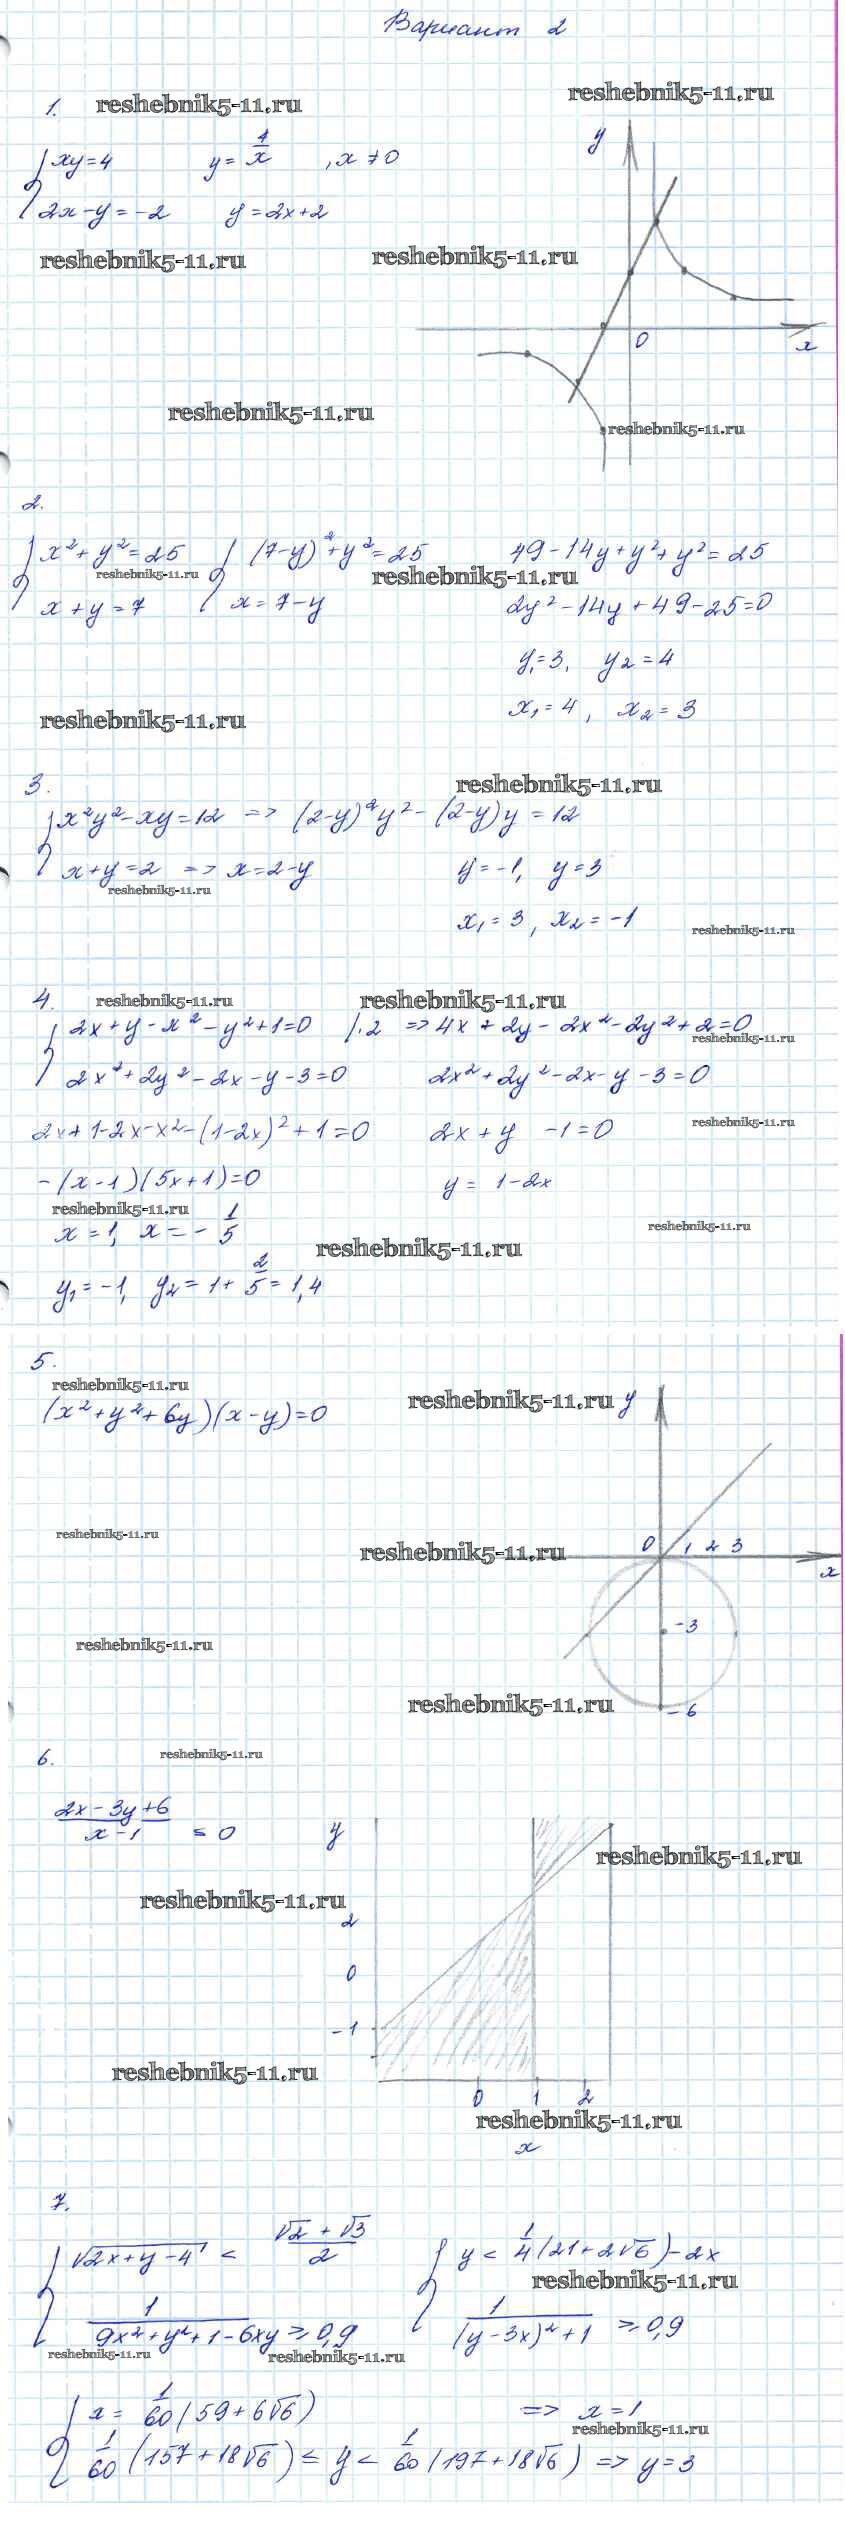 Вариант 2
1. reshebnik5-11.ru reshebnik5-11.ru
y
xy=4 y= 4/x , x≠0
2x-y=-2 y=2x+2
reshebnik5-11.ru reshebnik5-11.ru
0 x
reshebnik5-11.ru
reshebnik5-11.ru
2.
x²+y²=25 (7-y)²+y²=25 49-14y+y²+y²=25
reshebnik5-11.ru reshebnik5-11.ru
x+y=7 x=7-y 2y²-14y+49-25=0
y₁=3, y₂=4
reshebnik5-11.ru x₁=4, x₂=3
3. reshebnik5-11.ru
x²y²-xy=12 => (2-y)²y²-(2-y)y=12
x+y=2 => x=2-y y=-1, y=3
reshebnik5-11.ru
x₁=3, x₂=-1 reshebnik5-11.ru
4. reshebnik5-11.ru reshebnik5-11.ru
2x+y-x²-y²+1=0 |·2 => 4x+2y-2x²-2y²+2=0
reshebnik5-11.ru
2x²+2y²-2x-y-3=0 2x²+2y²-2x-y-3=0
2x+1-2x-x²-(1-2x)²+1=0 2x+y -1=0 reshebnik5-11.ru
-(x-1)(5x+1)=0 y= 1-2x
reshebnik5-11.ru
x=1, x=- 1/5 reshebnik5-11.ru
reshebnik5-11.ru
y₁=-1, y₂=1+ 2/5 =1,4
5.
reshebnik5-11.ru reshebnik5-11.ru y
(x²+y²+6y)(x-y)=0
reshebnik5-11.ru reshebnik5-11.ru 0 1 2 3
x
-3
reshebnik5-11.ru
reshebnik5-11.ru -6
6. reshebnik5-11.ru
(2x-3y+6)/(x-1) ≤ 0 y
reshebnik5-11.ru
reshebnik5-11.ru
2
0
-1
reshebnik5-11.ru
0 1 2
reshebnik5-11.ru
x
7.
√(2x+y-4) < (√2+√3)/2 y < 1/4 (21+2√6)-2x
reshebnik5-11.ru
1/(9x²+y²+1-6xy) ≥ 0,9 1/((y-3x)²+1) ≥ 0,9
reshebnik5-11.ru reshebnik5-11.ru
x= 1/60 (59+6√6) => x=1
reshebnik5-11.ru
1/60 (157+18√6) ≤ y < 1/60 (197+18√6) => y=3